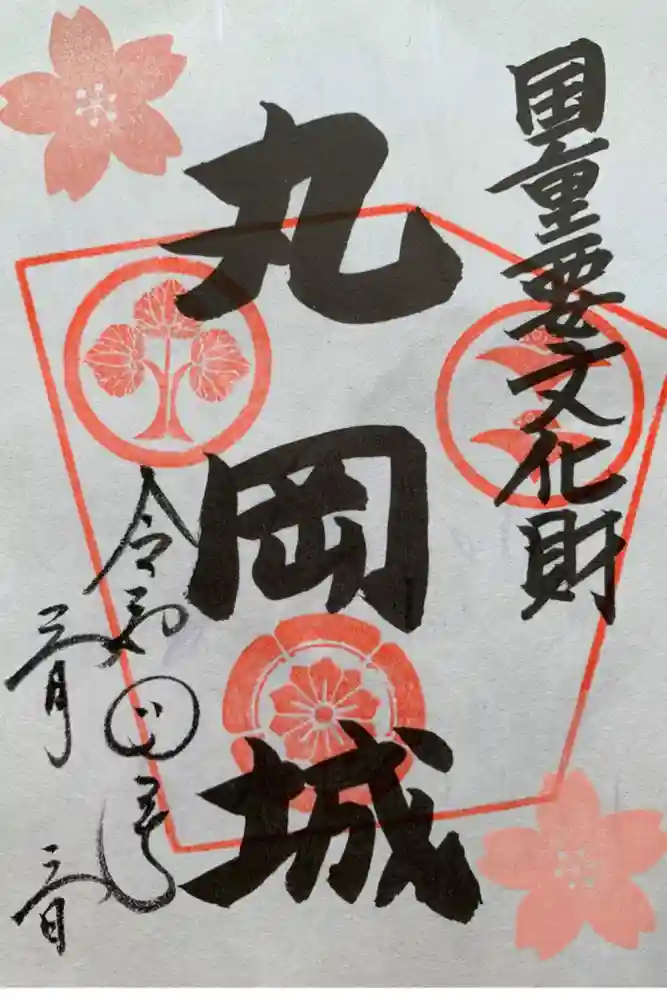 国重要文化財
丸岡城
令和四年
三月
三日